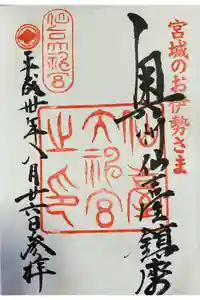 宮城のお伊勢さま
奥州仙臺鎮座
仙臺大神宮之印
平成卅年八月廿六日参拝